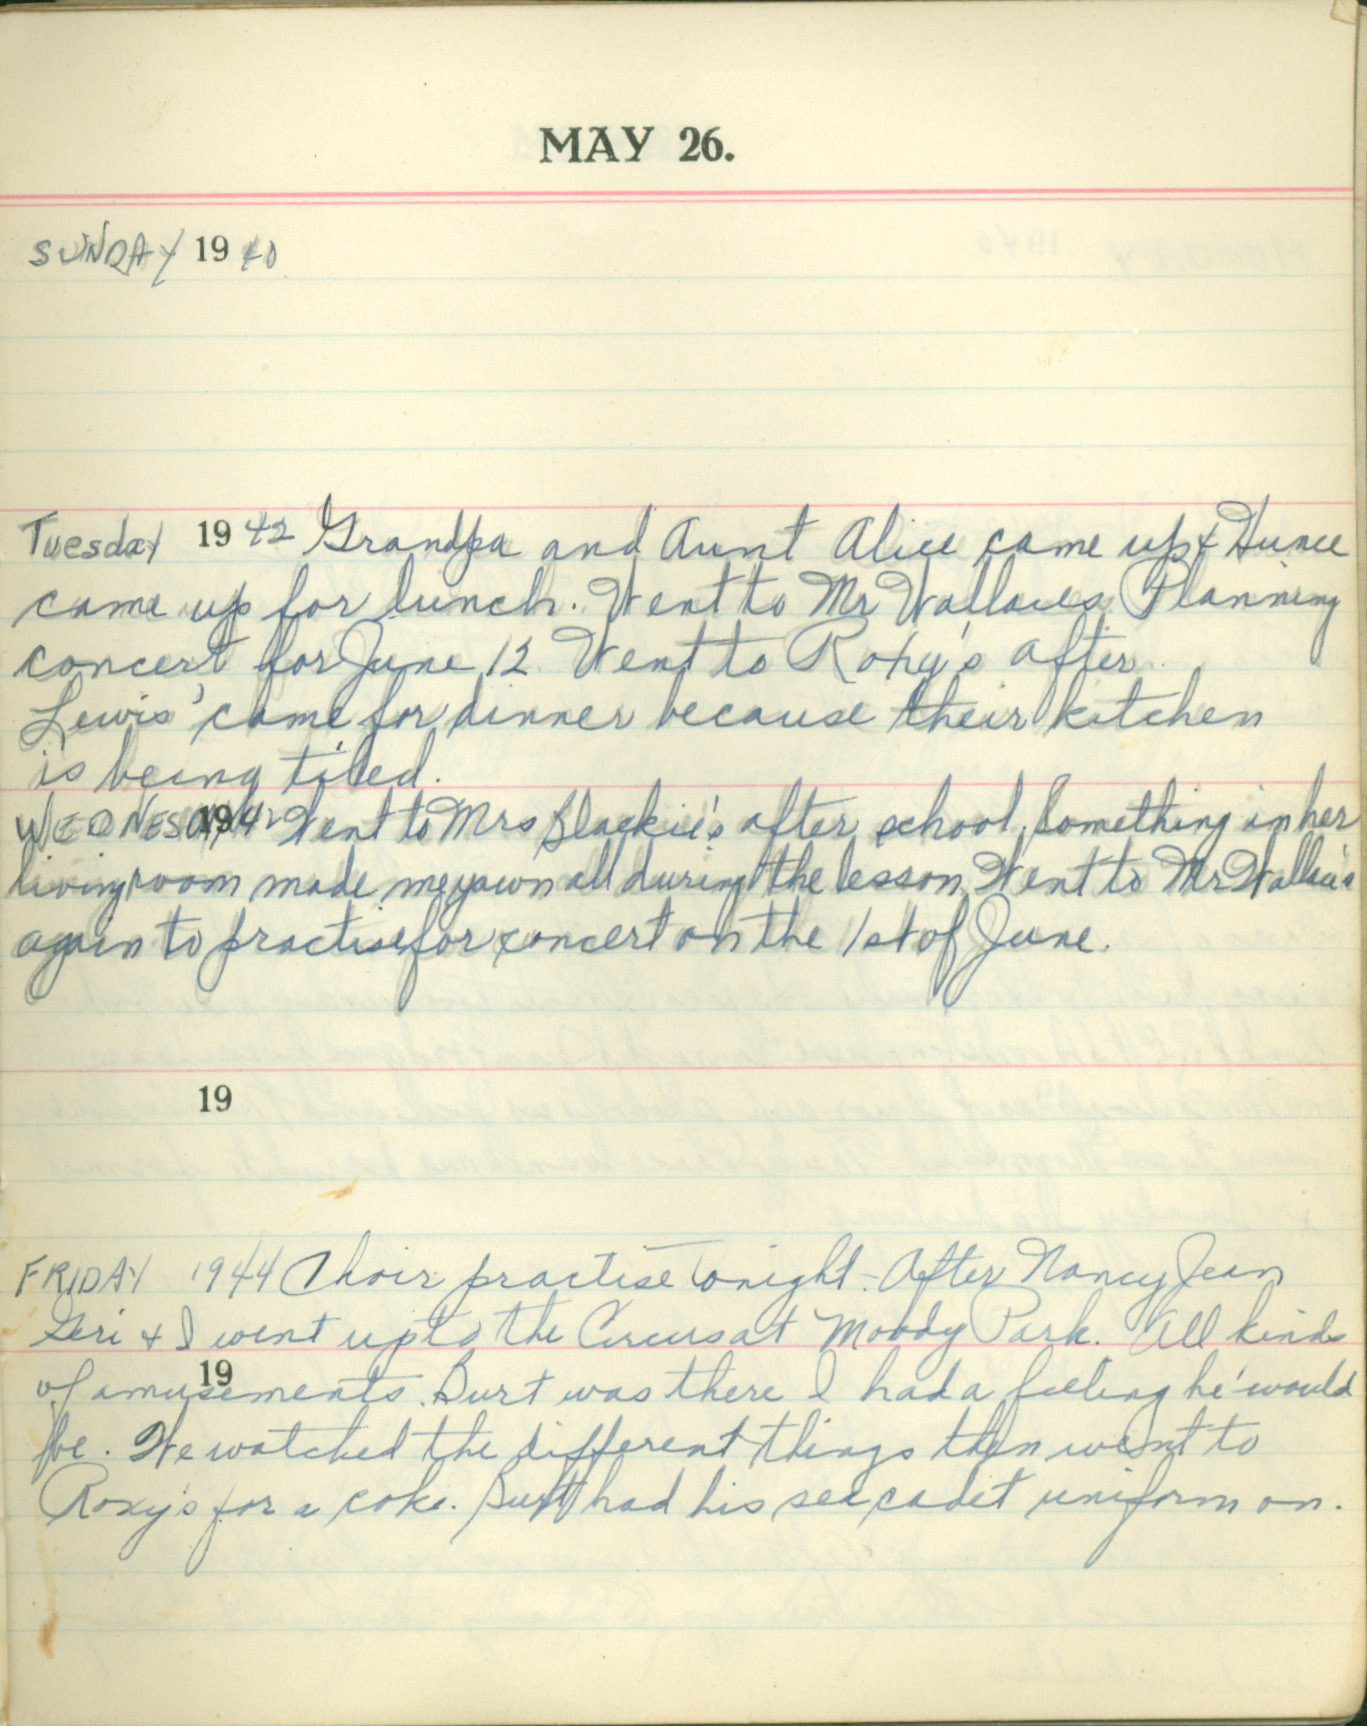 MAY 26.
SUNDAY 1940
Tuesday 1942 Grandpa and Aunt Alice came up &
came up for lunch. Went to Mr Wallaces. Planning
concert for June 12 Went to Roxy's after
Lewis' came for dinner because their kitchen
is being tiled.
WEDNESDAY 1942 Went to Mrs Blackie's after school. Something in her
livingroom made me yawn all during the lesson. Went to Mr
again to practise for concert on the 1st of June.
19
FRIDAY 1944 Choir practise tonight - After Nancy Jean
Geri & I went up to the Circus at Moody Park. All kinds
19
of amusements. Burt was there I had a feeling he'would
be. We watched the different things then went to
Roxy's for a coke. Burt had his sea cadet uniform on.